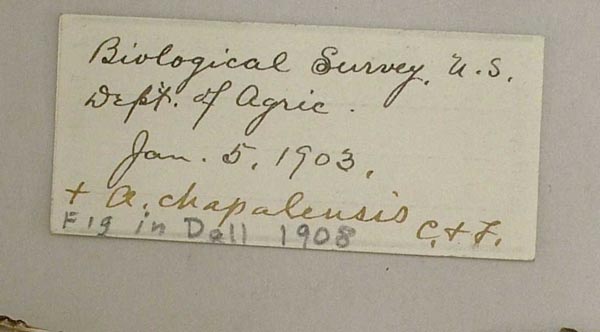 Biological Survey, U.S.
Dept. of Agric.
Jan. 5, 1903.
+ A. chapalensis C. & F.
Fig in Dall 1908